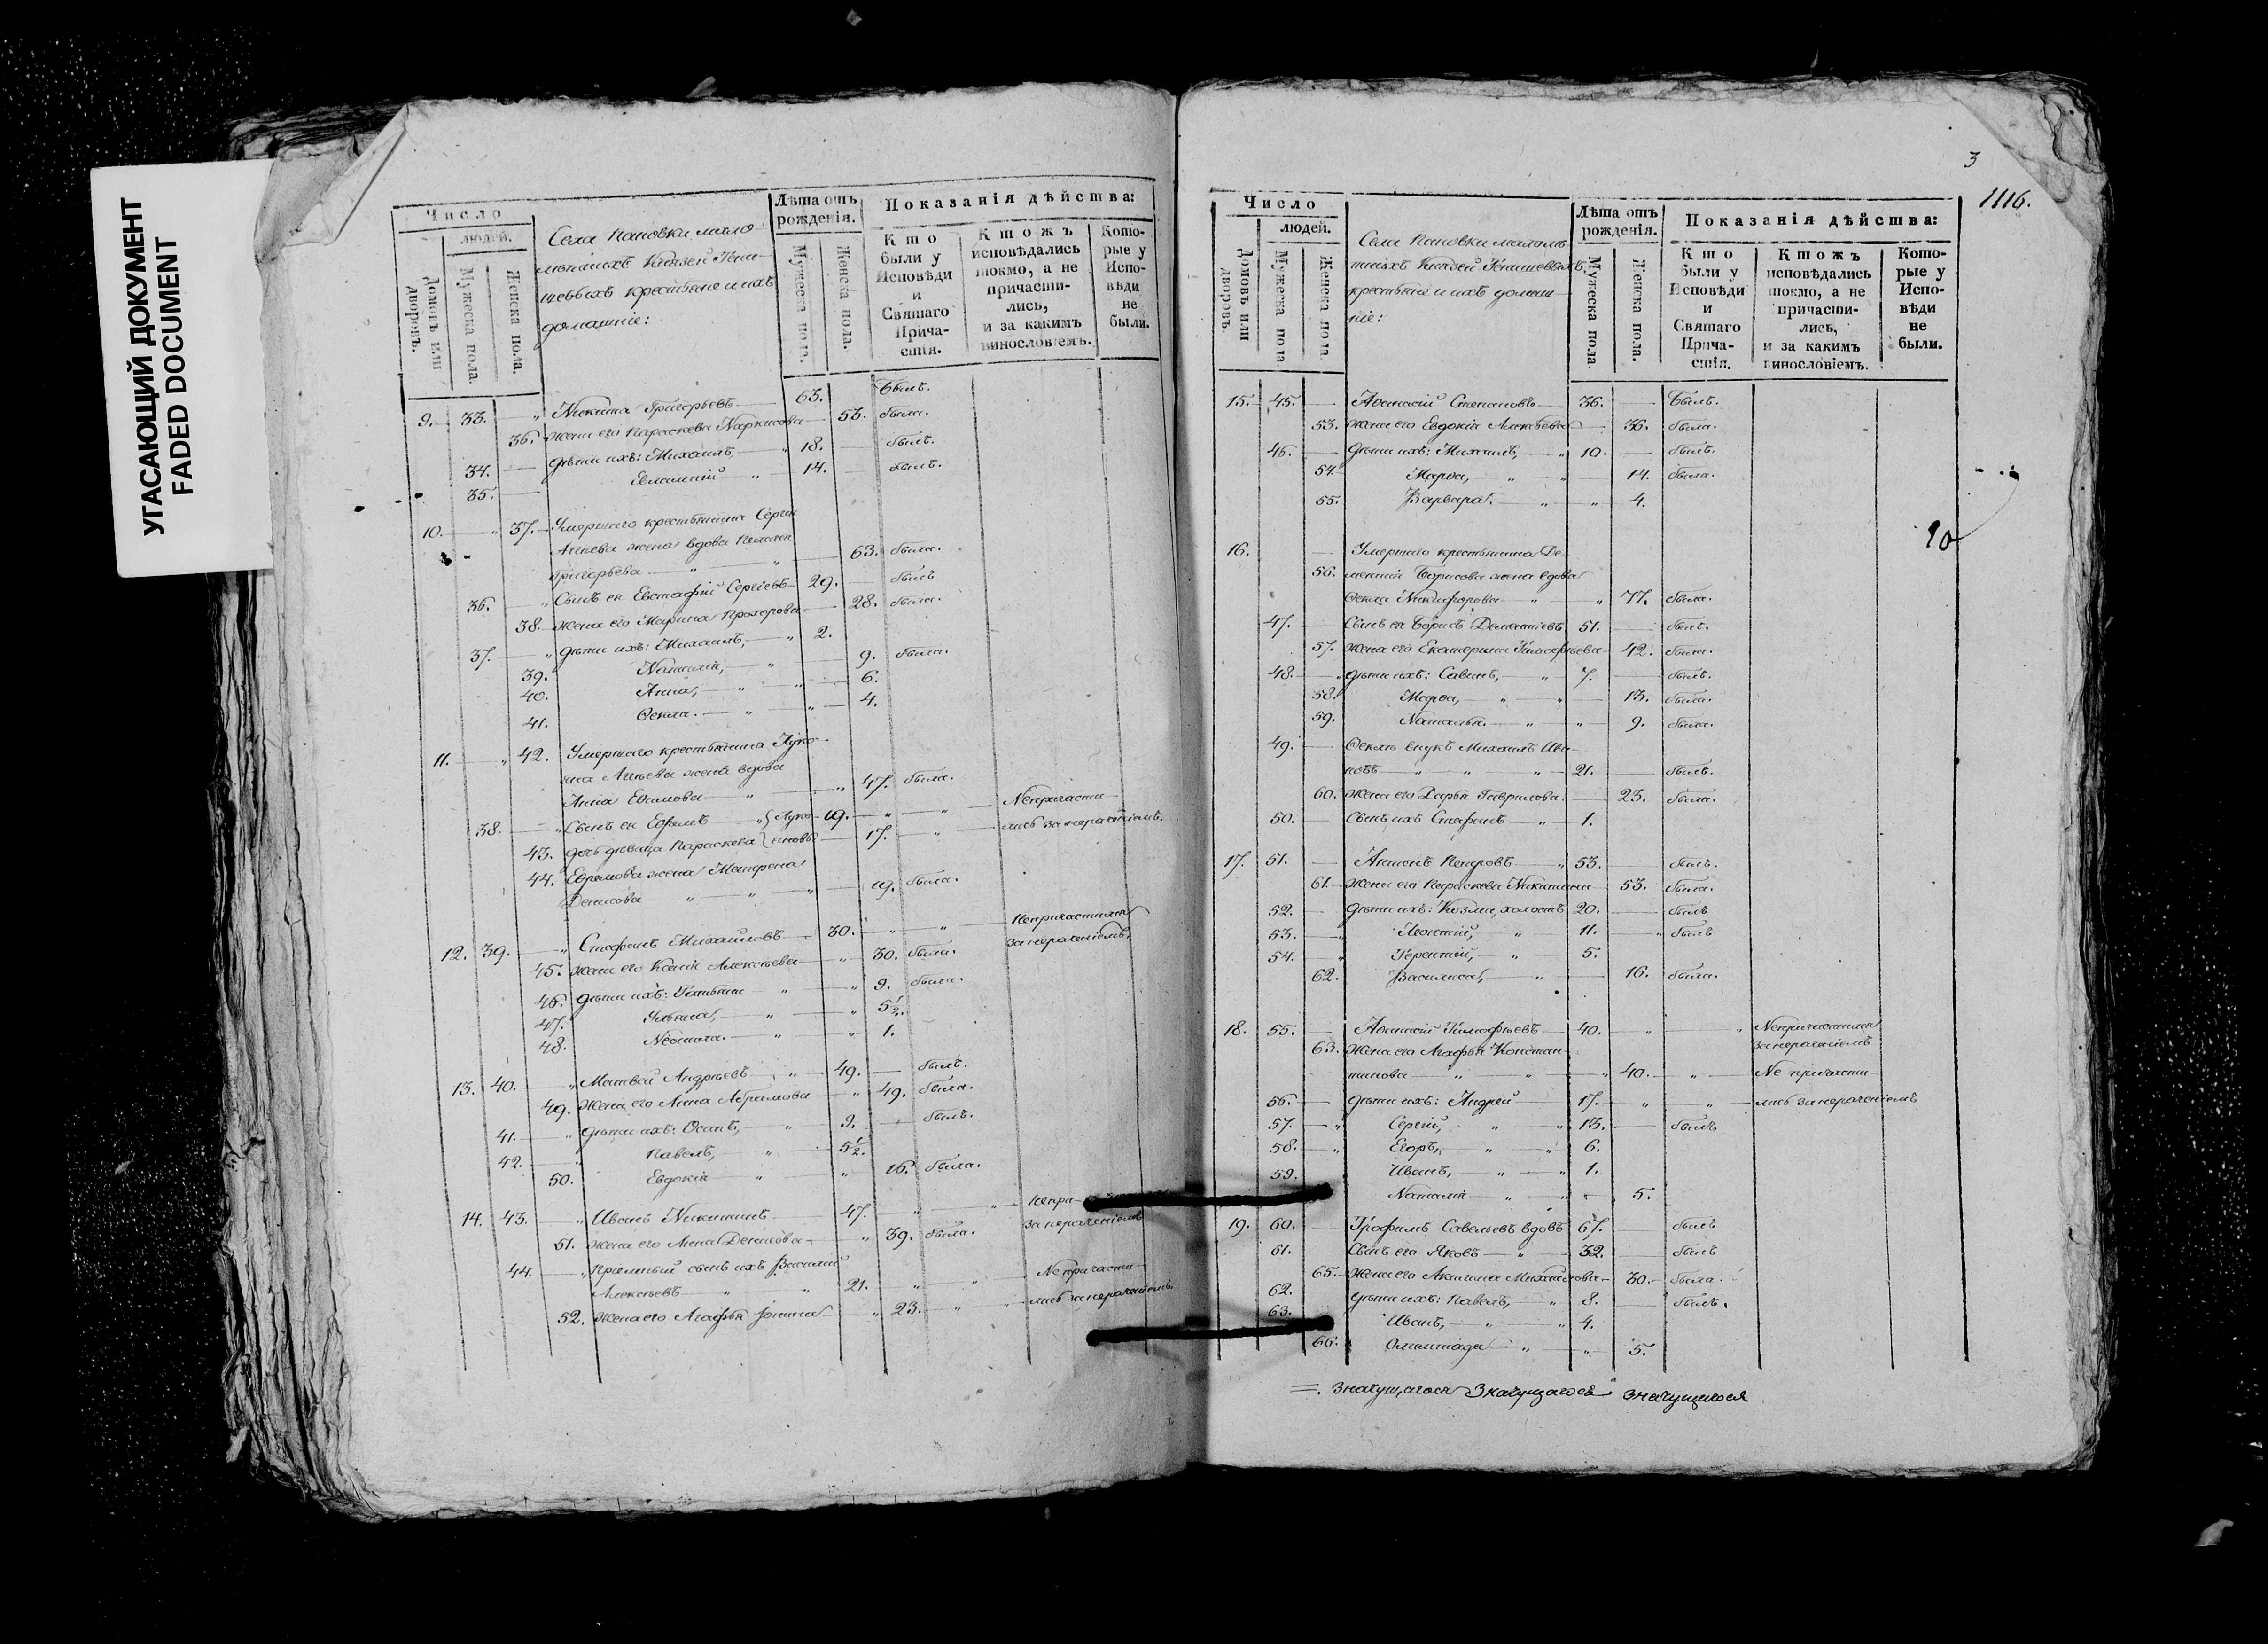 УГАСАЮЩИЙ ДОКУМЕНТ
FADED DOCUMENT
Число
людей.
Домовъ или дворовъ.
Мужеска пола.
Женска пола.
Села Пановки мало-
крестьяне и ихъ
домашніе:
Лѣта отъ рожденія.
Мужеска пола.
Женска пола.
Показанія дѣйства:
Кто были у Исповѣди и Святаго Прича-стія.
Ктожъ исповѣдались токмо, а не причасти-лись, и за какимъ винословіемъ.
Кото-рые у Испо-вѣди не были.
9. 33. „ Никита Григорьевъ 63. былъ.
36. жена его Параскева Наркисова 53. была.
34. дѣти ихъ: Михаилъ, „ 18. былъ.
35. Евлампій „ 14. былъ.
10. „ 37. Умершаго крестьянина Сергія
жена вдова Пелагея
Григорьева „ „ 63. была.
36. „ Сынъ ея Евстафій Сергіевъ 29. былъ
38. жена его Марина Прохорова 28. была.
37. „ дѣти ихъ: Михаилъ, „ 2.
39. Наталія, „ 9. была.
40. Анна, „ „ 6.
41. Ѳекла. „ „ 4.
11. „ 42. Умершаго крестьянина Луко-
жена вдова
Анна Ефимова „ „ 47. была.
38. „ Сынъ ея Ефремъ „ Луко- 19. „ „ Непричасти-
43. дочь дѣвица Параскева иновы 17. „ лись за нераченіемъ.
44. Ефремова жена Матрена
Денисова „ „ „ 19. была.
12. 39. „ Стефанъ Михайловъ 30. „ „ Непричастился
45. жена его Ксенія Алексѣева „ 30. была. за нераченіемъ.
46. дѣти ихъ: Татьяна „ „ 9. была.
47. Ульяна, „ „ 5½.
48. Неонила. „ „ 1.
13. 40. „ Матвей Андреевъ „ 49. былъ.
49. жена его Анна Абрамова „ 49. была.
41. „ дѣти ихъ: Осипъ, „ 9. былъ.
42. „ Павелъ, „ 5½.
50. Евдокія „ „ 16. была.
14. 43. „ Иванъ Никитинъ 47. „ „ непри-
51. жена его Анна Денисова „ 39. была. за нераченіемъ
44. „ Пріемный сынъ ихъ Василій
Алексѣевъ „ „ 21. „ „ Непричасти-
52. Жена его Агафья „ 23. „ „ лись за нераченіемъ
3
1116.
Число
людей.
Домовъ или дворовъ.
Мужеска пола
Женска пола.
Села Пановки
крестьяне и ихъ домаш-
ніе:
Лѣта отъ рожденія.
Мужеска пола
Женска пола.
Показанія дѣйства:
Кто были у Исповѣди и Святаго Прича-стія.
Ктожъ исповѣдались токмо, а не причасти-лись, и за какимъ винословіемъ.
Кото-рые у Испо-вѣди не были.
15. 45. Степановъ 36. Былъ.
53. жена его Евдокія Алексѣева 36. была.
46. дѣти ихъ: Михаилъ, „ 10. былъ.
54. Марѳа, „ „ 14. была.
55. Варвара. „ „ 4.
10
16. Умершаго крестьянина Де-
56. ментія Борисова жена вдова
Ѳекла Никифорова „ „ 77. была.
47. Сынъ ея Борисъ Дементіевъ 51. былъ.
57. жена его Екатерина Тимофеева 42. была.
48. „ дѣти ихъ: Савинъ, „ 7. былъ.
58. Марѳа, „ „ 13. была.
59. Наталья. „ „ 9. была.
49. Ѳеклы внукъ Михаилъ Ива-
новъ „ „ „ 21. былъ.
60. жена его Дарья Гаврилова. 23. была.
50. Сынъ ихъ Стефанъ „ 1.
17. 51. Антонъ Петровъ „ 53. былъ.
61. жена его Параскева Никитина 53. была.
52. дѣти ихъ: Козма, холостъ 20. былъ
53. „ Леонтій, „ 11. „ былъ
54. „ Терентій, „ 5.
62. Василиса, „ 16. была.
18. 55. Тимофеевъ 40. „ „ Непричастился
63. жена его Агафья Констан- за нераченіемъ
тинова „ „ „ 40. „ Не причасти-
56. дѣти ихъ: Андрей 17. „ „ лись за нераченіемъ
57. „ Сергій, „ „ 13. былъ
58. „ Егоръ, „ „ 6.
59. Иванъ, „ „ 1.
Наталія „ „ „ 5.
19. 60. Трофимъ Савельевъ вдовъ 67. былъ
61. Сынъ его Яковъ „ 32. былъ
65. Жена его Акилина Михайлова 30. была.
62. дѣти ихъ: Павелъ, „ 8. былъ.
63. Иванъ, „ „ 4.
66. Олимпіада „ „ 5.
=. значущагося Значущагося значущагося